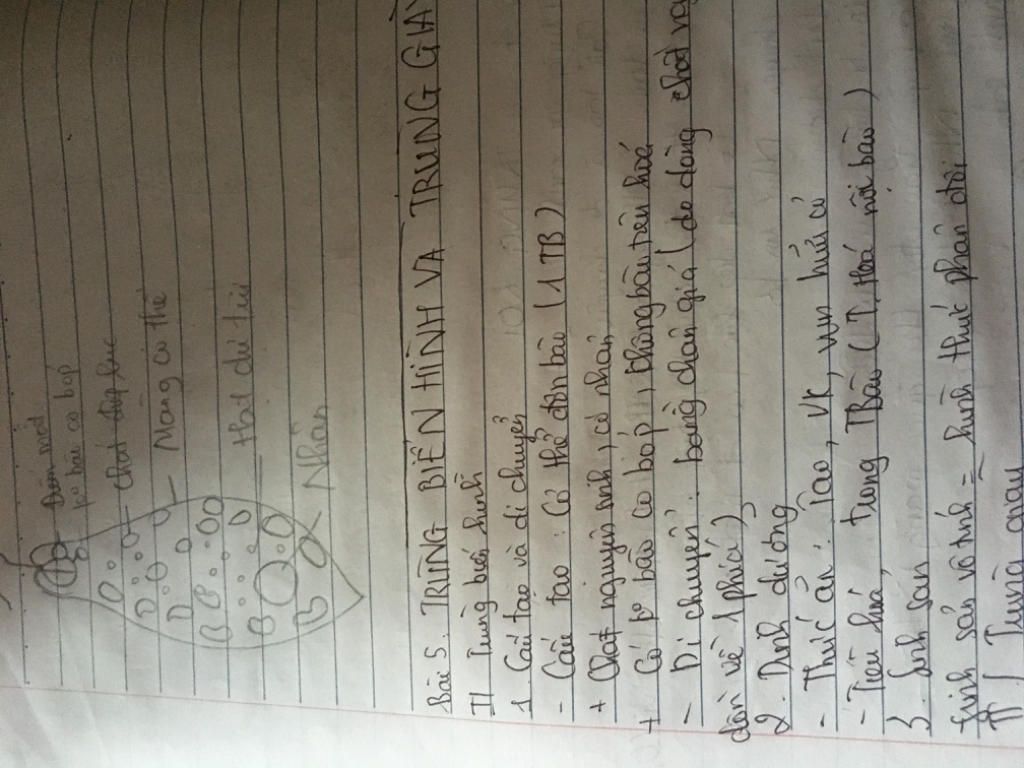 Điểm mắt
Không bào co bóp
chất diệp lục
Màng cơ thể
Hạt dự trữ
Nhân
Bài 5. TRÙNG BIẾN HÌNH VÀ TRÙNG GIÀY
I/ Trùng biến hình
1. Cấu tạo và di chuyển
- Cấu tạo: Cơ thể đơn bào (1TB)
+ Chất nguyên sinh, có nhân
+ Có k° bào co bóp, không bào tiêu hoá
- Di chuyển: bằng chân giả (do dòng chất
dồn về 1 phía)
2. Dinh dưỡng
- Thức ăn: Tảo, VK, vụn hữu cơ
- Tiêu hoá trong TBào (T. Hoá nội bào)
3. Sinh sản
Sinh sản vô tính = hình thức phân đôi
II/ Trùng giày